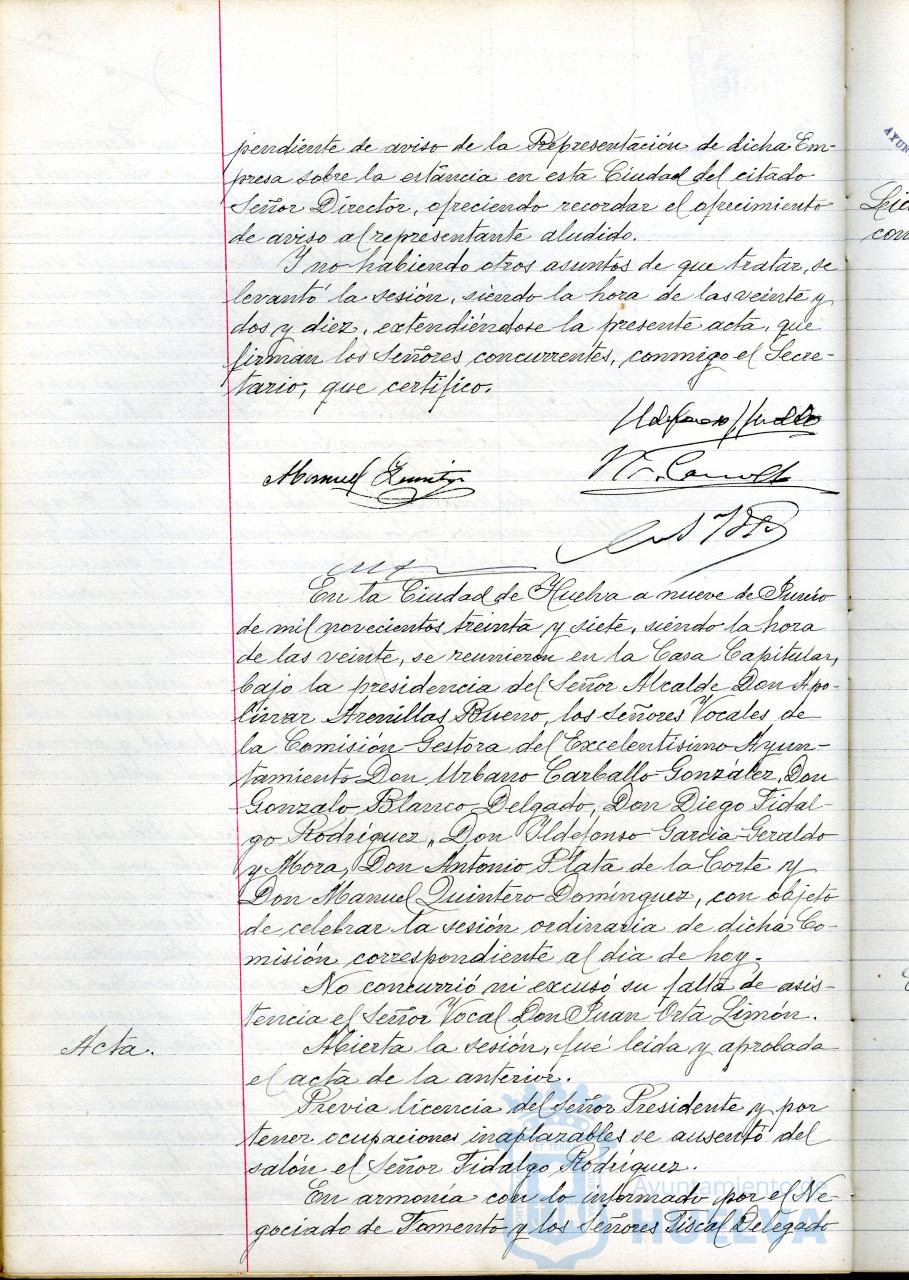 pendiente de aviso de la Representación de dicha Em-
presa sobre la estáncia en esta Ciudad del citado
Señor Director, ofreciendo recordar el ofrecimiento
de aviso al representante aludido.
Y no habiendo otros asuntos de que tratar, se
levantó la sesión, siendo la hora de las veinte y
dos y diez, extendiéndose la presente acta, que
firman los Señores concurrentes, conmigo el Secre-
tario, que certifico.
Manuel
En la Ciudad de Huelva a nueve de Junio
de mil novecientos treinta y siete, siendo la hora
de las veinte, se reunieron en la Casa Capitular,
bajo la presidencia del Señor Alcalde Don Apo-
linar Arenillas Bueno, los señores Vocales de
la Comisión Gestora del Excelentísimo Ayun-
tamiento Don Urbano Carballo González, Don
Gonzalo Blanco Delgado, Don Diego Fidal-
go Rodríguez, Don Ildefonso García-Geraldo
y Mora, Don Antonio Plata de la Corte y
Don Manuel Quintero Domínguez, con objeto
de celebrar la sesión ordinaria de dicha Co-
misión correspondiente al día de hoy.
No concurrió ni excusó su falta de asis-
tencia el Señor Vocal Don Juan Orta Limón.
Acta.
Abierta la sesión, fué leida y aprobada
el acta de la anterior.
Previa licencia del Señor Presidente y por
tener ocupaciones inaplazables se ausentó del
salón el Señor Fidalgo Rodríguez.
En armonía con lo informado por el Ne-
gociado de Fomento y los Señores Fiscal Delegado
Ayuntamiento de
HUELVA